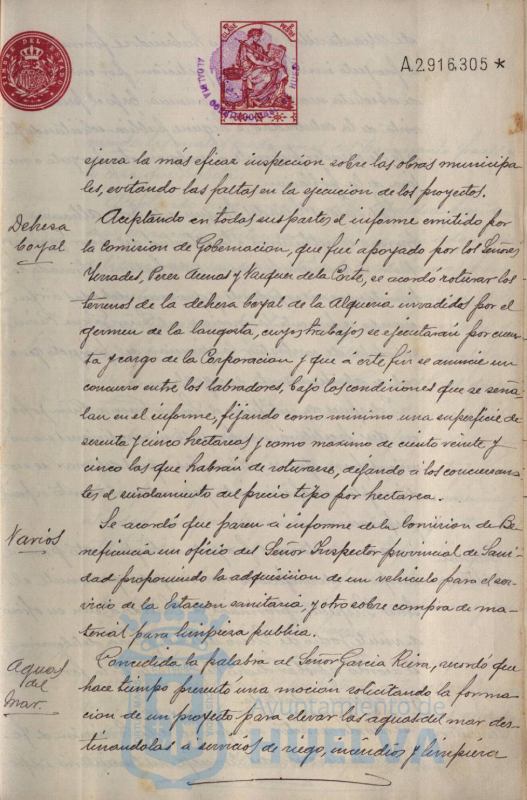 A.2.916.305 *
ejerza la más eficaz inspeccion sobre las obras municipa-
les, evitando las faltas en la ejecucion de los proyectos.
Dehesa
boyal
Aceptando en todas sus partes el informe emitido por
la Comision de Gobernacion, que fué apoyado por los Señores
Terrades, Perez Arenas y Vazquez de la Corte, se acordó roturar los
terrenos de la dehesa boyal de la Alqueria invadidos por el
germen de la langosta, cuyos trabajos se ejecutarán por cuen-
ta y cargo de la Corporacion y que á este fin se anuncie un
concurso entre los labradores, bajo las condiciones que se seña-
lan en el informe, fijando como minimo una superficie de
sesenta y cinco hectareas y como maximo de ciento veinte y
cinco las que habrán de roturarse, dejando á los concursan-
tes el señalamiento del precio tipo por hectarea.
Varios
Se acordó que pasen á informe de la Comision de Be-
neficiencia un oficio del Señor Inspector provincial de Sani-
dad proponiendo la adquisicion de un vehiculo para el ser-
vicio de la Estacion sanitaria, y otro sobre compra de ma-
terial para limpieza publica.
Aguas
del
mar.
Concedida la palabra al Señor Garcia Riera, recordó que
hace tiempo presentó una moción solicitando la forma-
cion de un proyecto para elevar las aguas del mar des-
tinandolas á servicios de riego, incendios y limpieza
Ayuntamiento de
HUELVA